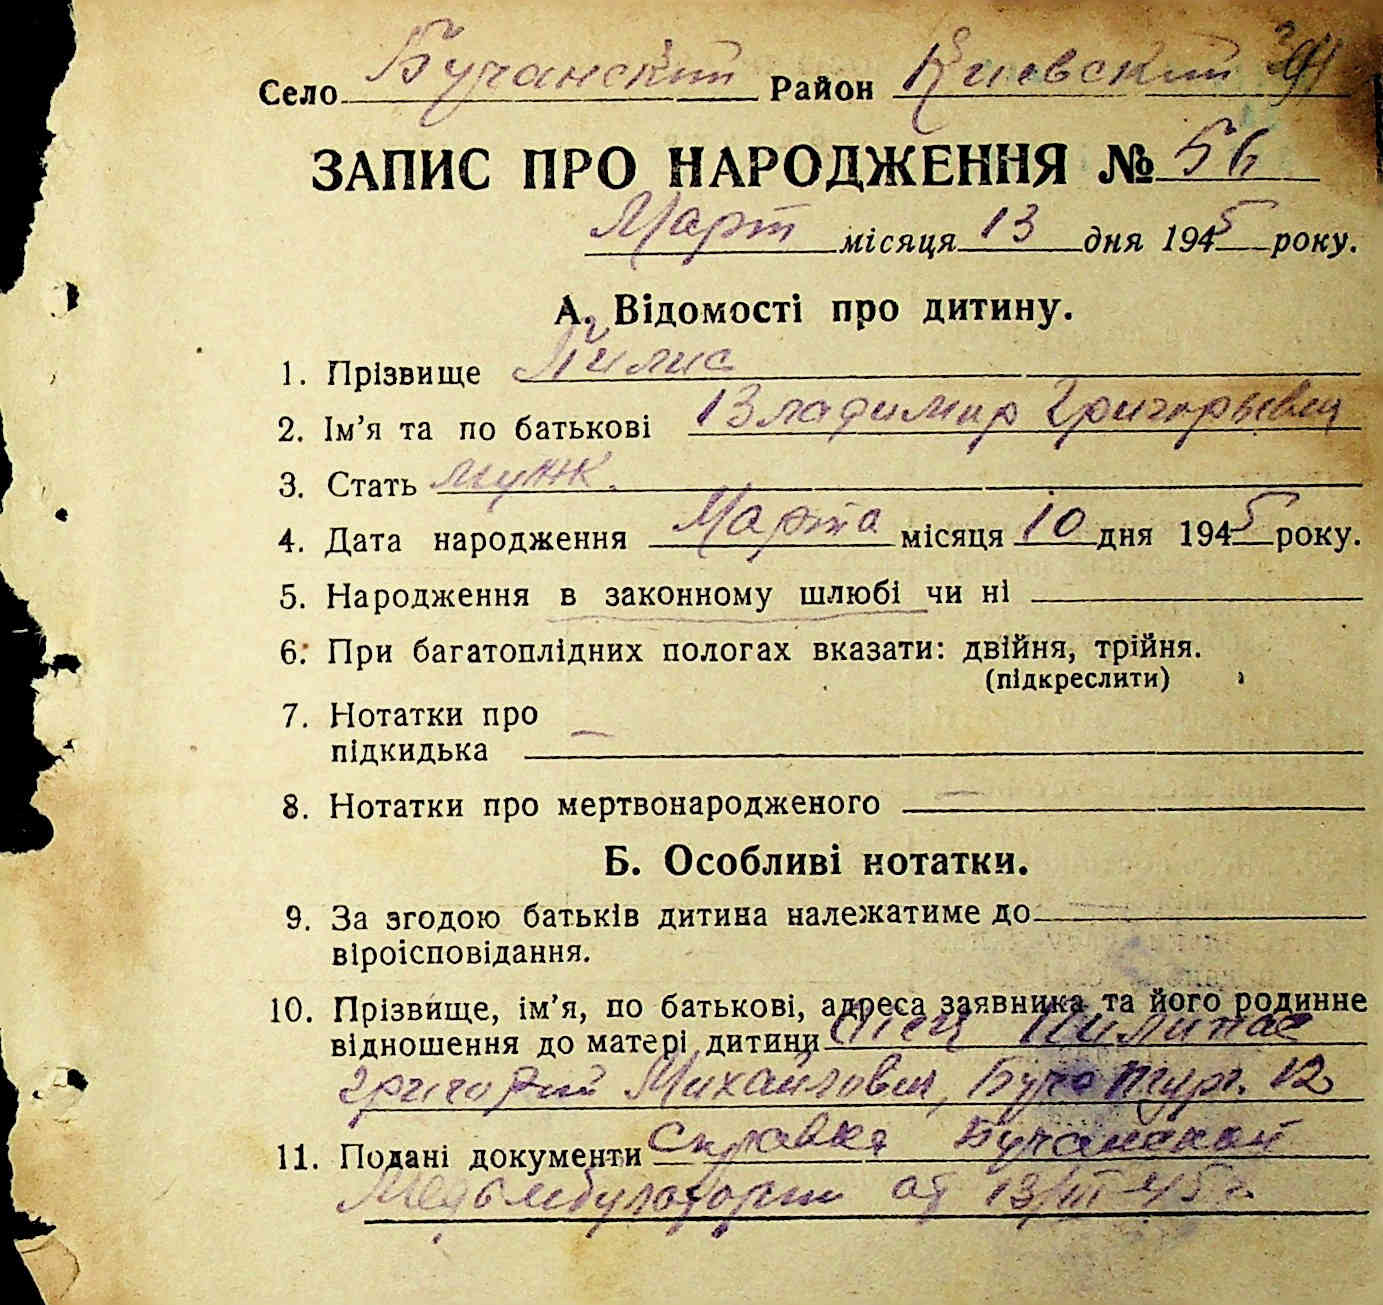 Село Бучанский Район Киевский
ЗАПИС ПРО НАРОДЖЕННЯ № 56
Март місяця 13 дня 1945 року.
А. Відомості про дитину.
1. Прізвище
2. Ім'я та по батькові Владимир Григорьевич
3. Стать муж.
4. Дата народження Марта місяця 10 дня 1945 року.
5. Народження в законному шлюбі чи ні
6. При багатоплідних пологах вказати: двійня, трійня.
(підкреслити)
7. Нотатки про —
підкидька
8. Нотатки про мертвонародженого —
Б. Особливі нотатки.
9. За згодою батьків дитина належатиме до —
віроісповідання.
10. Прізвище, ім'я, по батькові, адреса заявника та його родинне
відношення до матері дитини
Григорий Михайлович, Буча 12
11. Подані документи Справка Бучанской
Медамбулатории от 13/III-45 г.